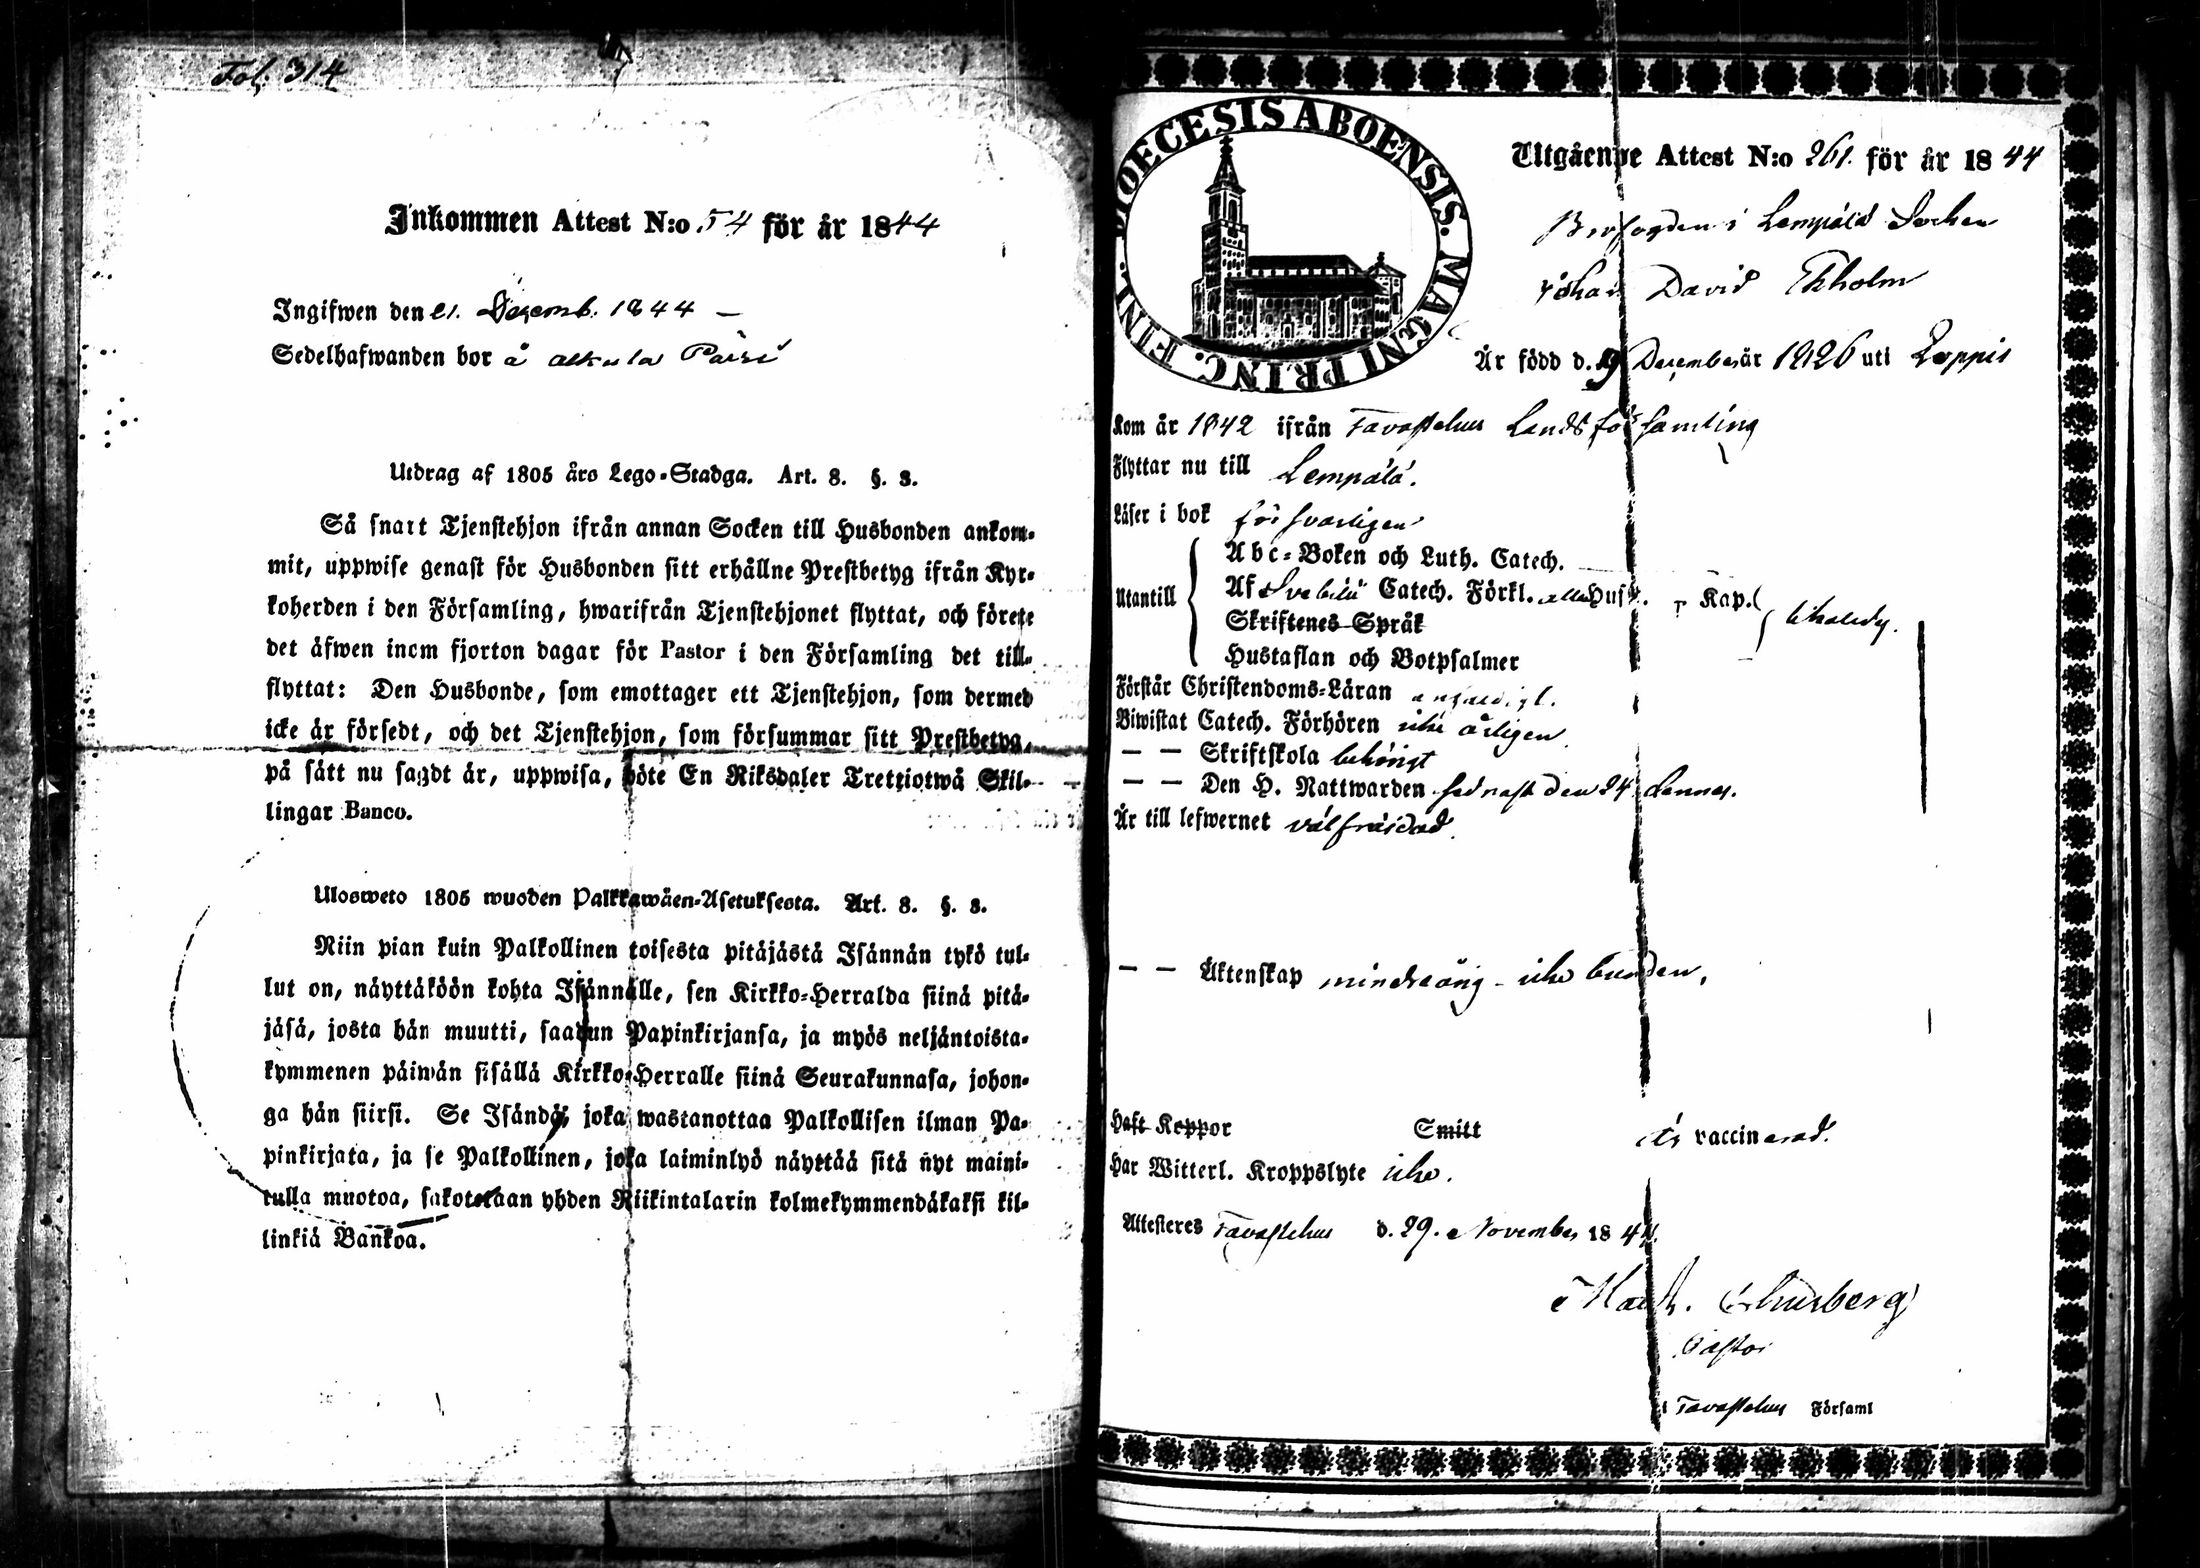 Fol. 314
Inkommen Attest N:o 54 för år 1844
Ingifwen den 21. Decemb. 1844 —
Sedelhafwanden bor å Alkula
Utdrag af 1805 års Lego-Stadga. Art. 8. §. 3.
Så snart Tjenstehjon ifrån annan Socken till Husbonden ankom-
mit, uppwise genast för Husbonden sitt erhållne Prestbetyg ifrån Kyr-
koherden i den Församling, hwarifrån Tjenstehjonet flyttat, och förete
det äfwen inom fjorton dagar för Pastor i den Församling det till-
flyttat: Den Husbonde, som emottager ett Tjenstehjon, som dermed
icke är försedt, och det Tjenstehjon, som försummar sitt Prestbetyg,
på sätt nu sagdt är, uppwisa, böte En Riksdaler Trettiotwå Skil-
lingar Banco.
Ulosweto 1805 wuoden Palkkawäen-Asetuksesta. Art. 8. §. 3.
Niin pian kuin Palkollinen toisesta pitäjästä Isännän tykö tul-
lut on, näyttäköön kohta Isännälle, sen Kirkko-Herralda siinä pitä-
jäsä, josta hän muutti, saadun Papinkirjansa, ja myös neljäntoista-
kymmenen päiwän sisällä Kirkko-Herralle siinä Seurakunnasa, johon-
ga hän siirsi. Se Isändä, joka wastanottaa Palkollisen ilman Pa-
pinkirjata, ja se Palkollinen, joka laiminlyö näyttää sitä nyt maini-
tulla muotoa, sakotetaan yhden Riikintalarin kolmekymmendäkaksi kil-
linkiä Bankoa.
DIOECESIS ABOENSIS. MAGNI PRINC. FINL.
Utgående Attest N:o 261. för år 1844
Brofogden i Lempälä Socken
Johan David Ekholm
Är född d. 9 December år 1826 uti Loppis
Kom år 1842 ifrån Tavastehus Landsförsamling
Flyttar nu till Lempälä.
Läser i bok försvarligen
Utantill
Abc-Boken och Luth. Catech.
Af Svebilii Catech. Förkl. alla Husf. Kap.
Skriftenes Språk
Hustaflan och Botpsalmer
Förstår Christendoms-Läran
Biwistat Catech. Förhören icke årligen
— — Skriftskola behörigt
— — Den H. Nattwarden sednast den 24 dennes.
Är till lefwernet välfräjdad.
— — Äktenskap minderårig - icke bunden,
Haft Koppor Smitt är vaccinerad.
Har Witterl. Kroppslyte icke.
Attesteres Tavastehus d. 29. November 1844.
Pastor
i Tavastehus Församl